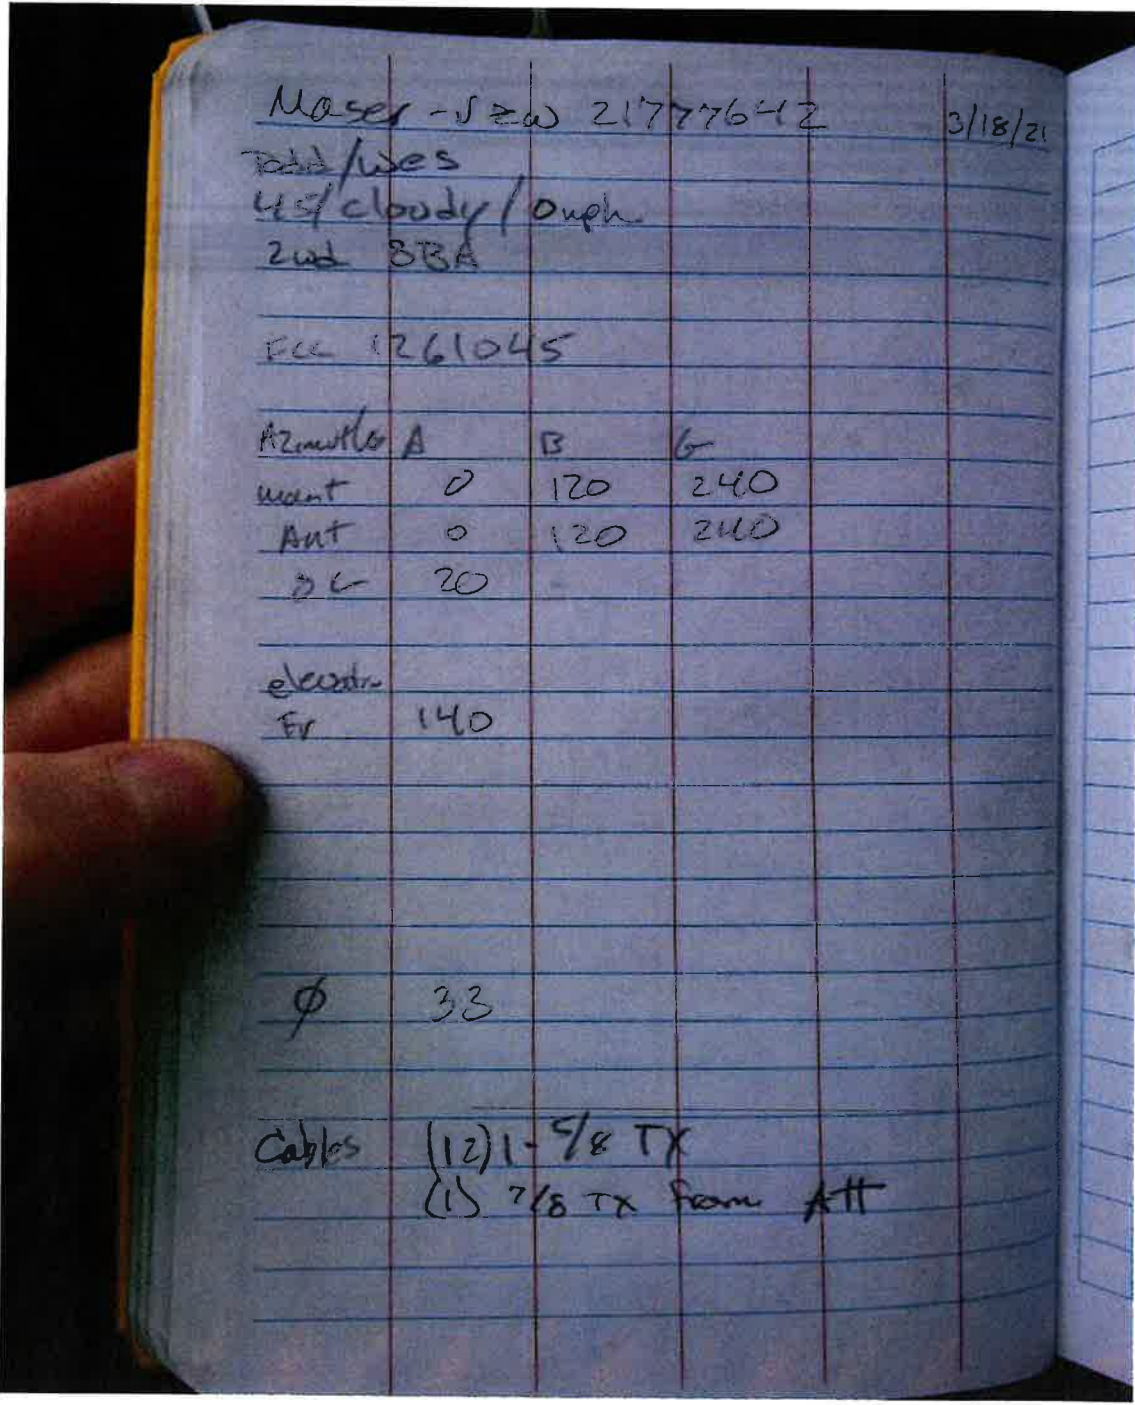 Maser - VZW 217777642 3/18/21
Todd/Wes
45/cloudy/0mph
SBA
FCC 1261045
Azimuths A B G
mount 0 120 240
Ant 0 120 240
20
elevation
140
ϕ 33
Cables (12) 1-5/8 TX
(1) 7/8 TX from Att